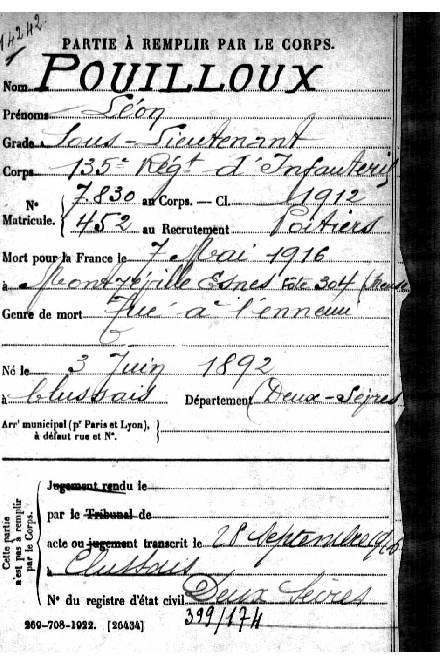 14242
PARTIE À REMPLIR PAR LE CORPS.
Nom POUILLOUX
Prénoms Léon
Grade Sous-Lieutenant
Corps 135e Régt d'Infanterie
N° Matricule. { 7.830 au Corps. — Cl. 1912
452 au Recrutement Poitiers
Mort pour la France le 7 Mai 1916
à Montzéville Esnes Cote 304 (Meuse
Genre de mort Tué à l'ennemi
Né le 3 Juin 1892
à Clussais Département (Deux-Sèvres
Arrt municipal (pr Paris et Lyon), à défaut rue et N°. }
Cette partie n'est pas à remplir par le Corps.
Jugement rendu le
par le Tribunal de
acte ou jugement transcrit le 28 Septembre
à Clussais
N° du registre d'état civil Deux Sèvres
399/174
269-708-1922. [26434]